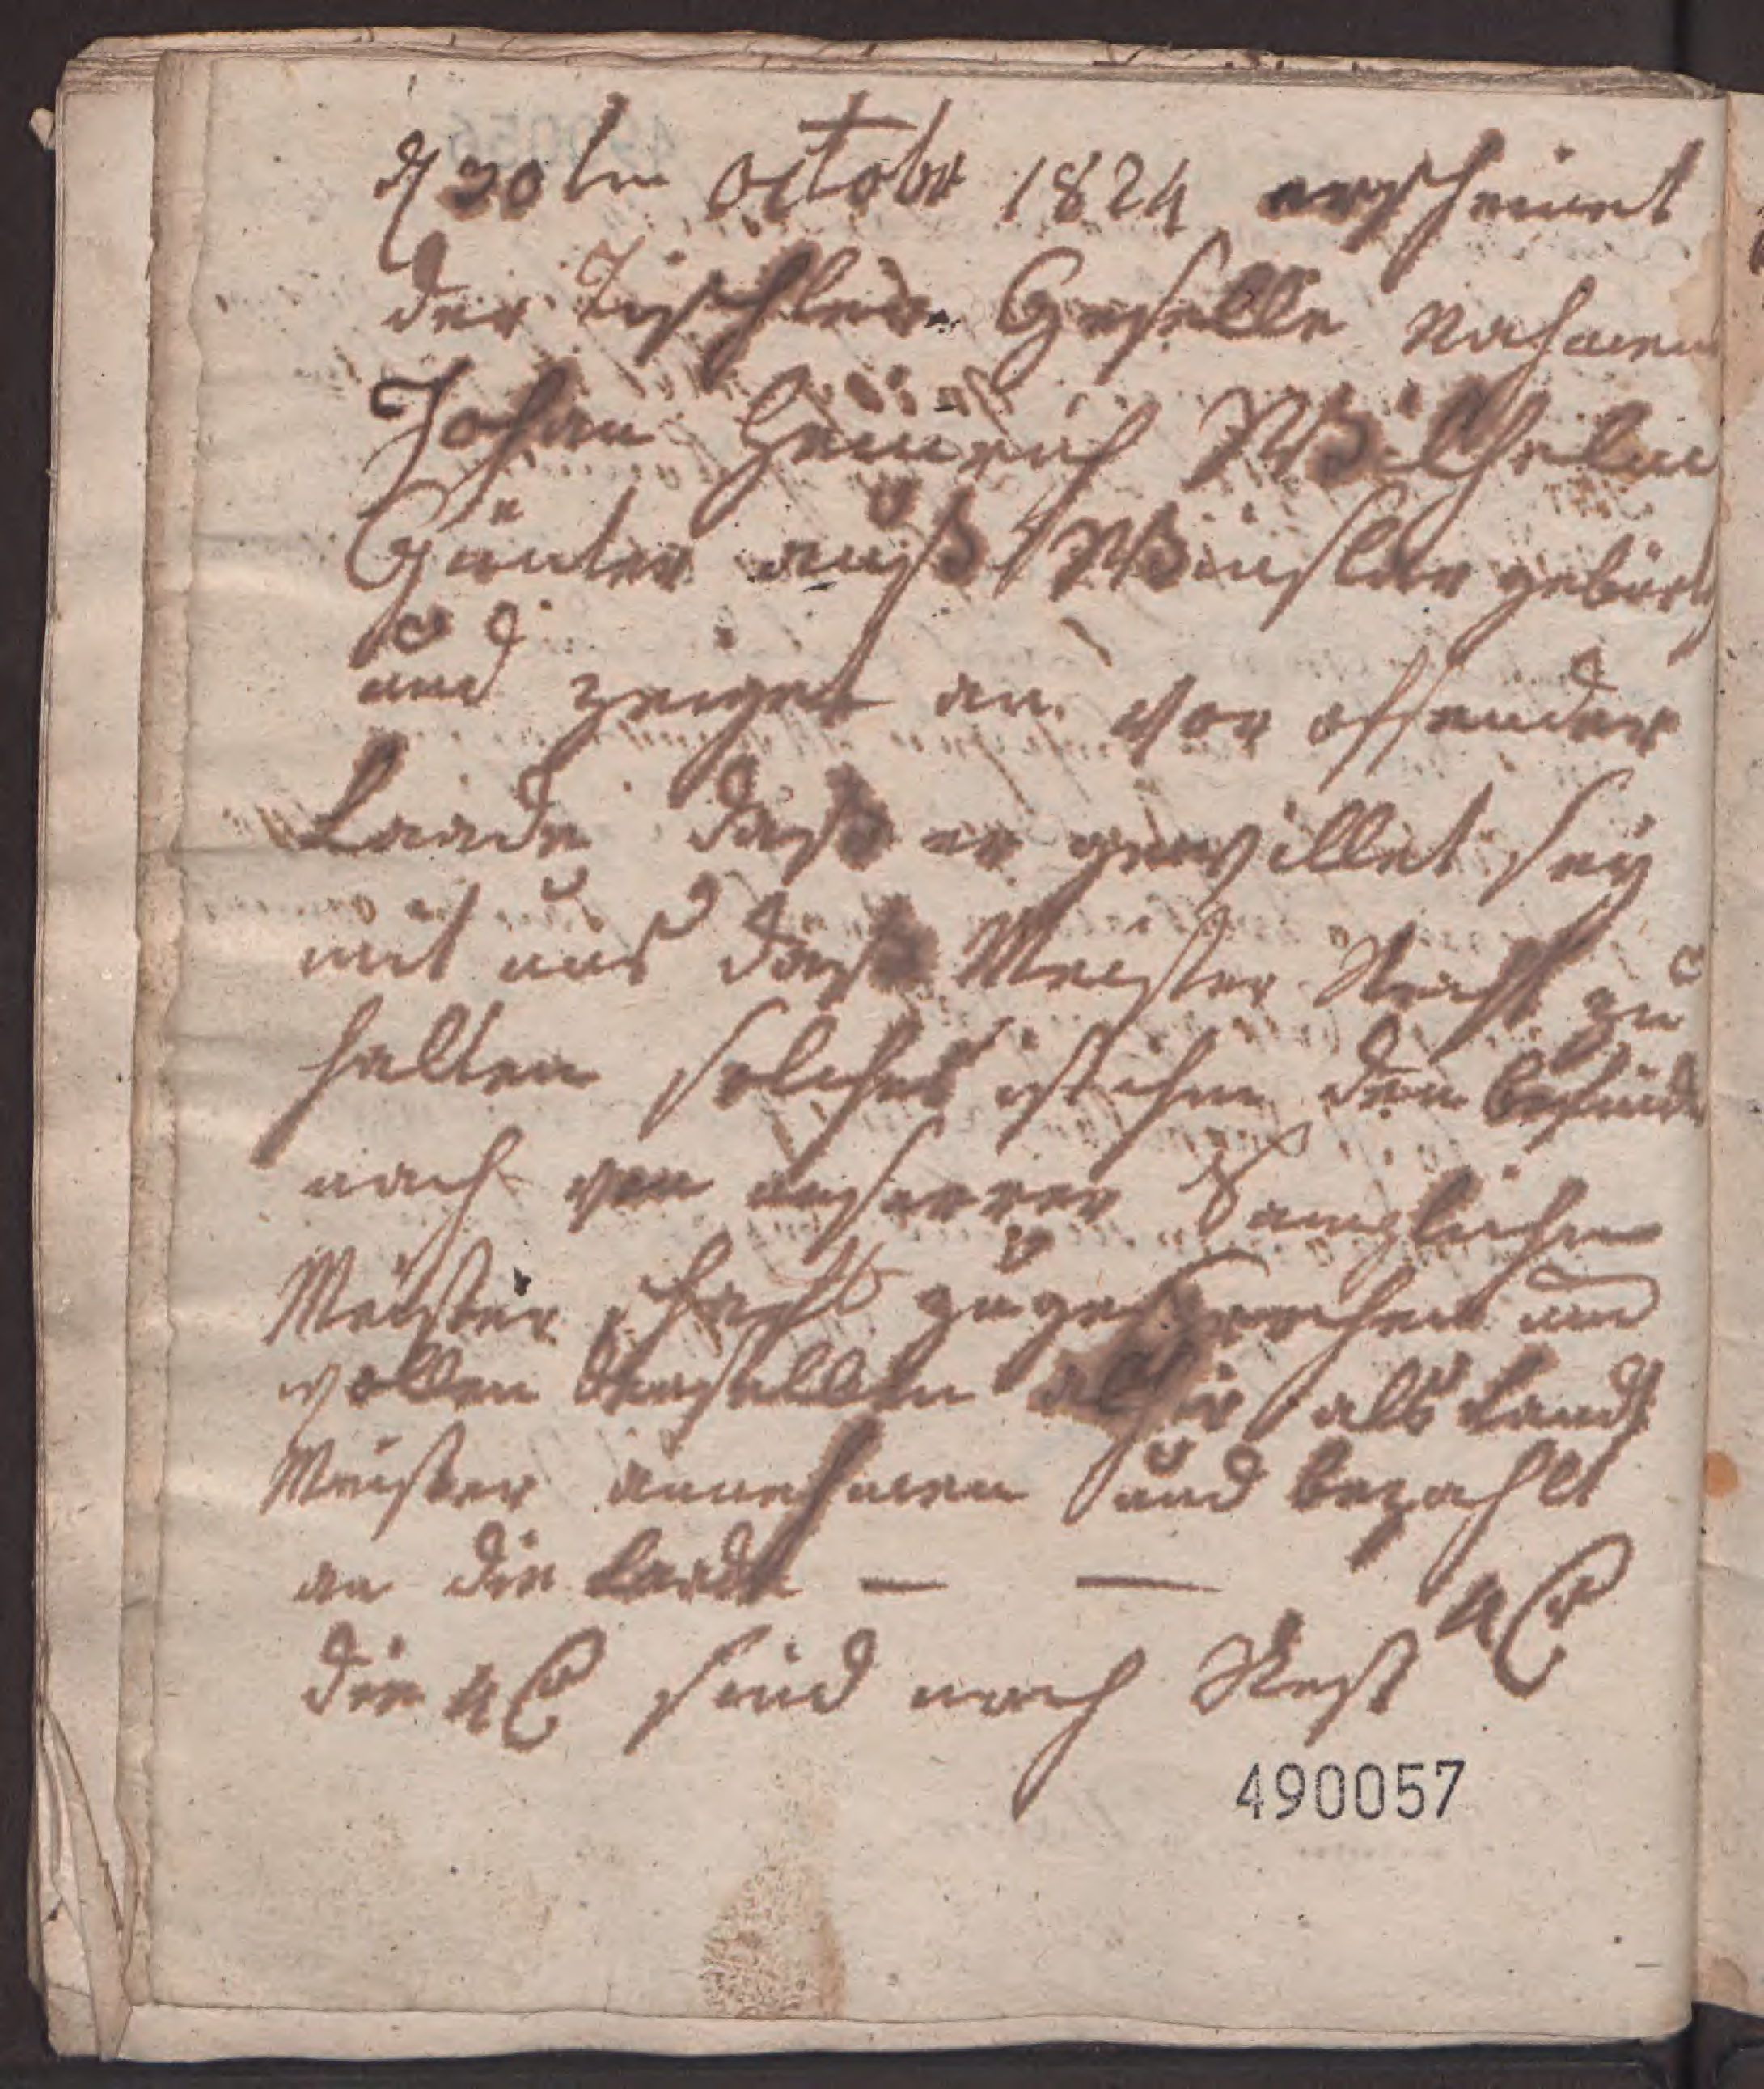 d 30ten October 1824 erscheinet
der Tischler Geselle Nahmens
Johan Heinrich Wilhelm
Günter auß Winslar gebürtig
und zeiget an vor offender
Laade daß er gewillet sey
mit uns daß Meister Recht zu
halten solches ist ihm dem befinden
nach von unserrer Sämzlichen
Meister schaft zugesprochen und
wollen denselben alhir als Land
Meister annehmen und bezahlt
an die Laade — — 4
die 4 sind noch Rest
490057